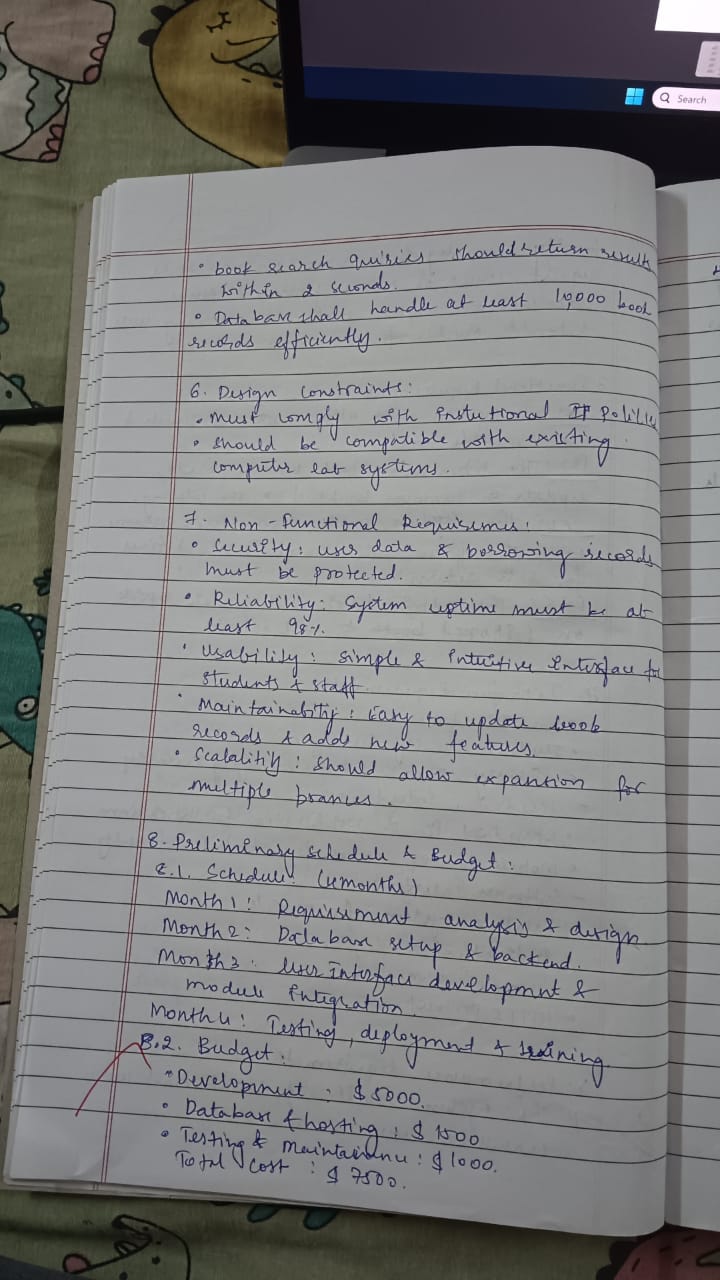 Search
• book search quiries should return results
within 2 seconds.
• Database shall handle at least 10,000 book
records efficiently.
6. Design constraints:
• Must comply with instutional IT policies
• Should be compatible with existing
computer lab systems.
7. Non-functional Requirements:
• Security: user data & borrowing records
must be protected.
• Reliability: System uptime must be at
least 98%.
• Usability: simple & intuitive interface for
students & staff
• Maintainability: Easy to update book
records & adds new features.
• Scalability: should allow expantion for
multiple
8. Preliminary schedule & Budget:
8.1. Schedule: (4 months)
Month 1: Requirement analysis & design
Month 2: Database setup & backend.
Month 3: User interface development &
module integration.
Month 4: Testing, deployment & training
8.2. Budget:
• Development: $5000.
• Database & hosting: $1500
• Testing & Maintainance: $1000.
Total cost: $7500.